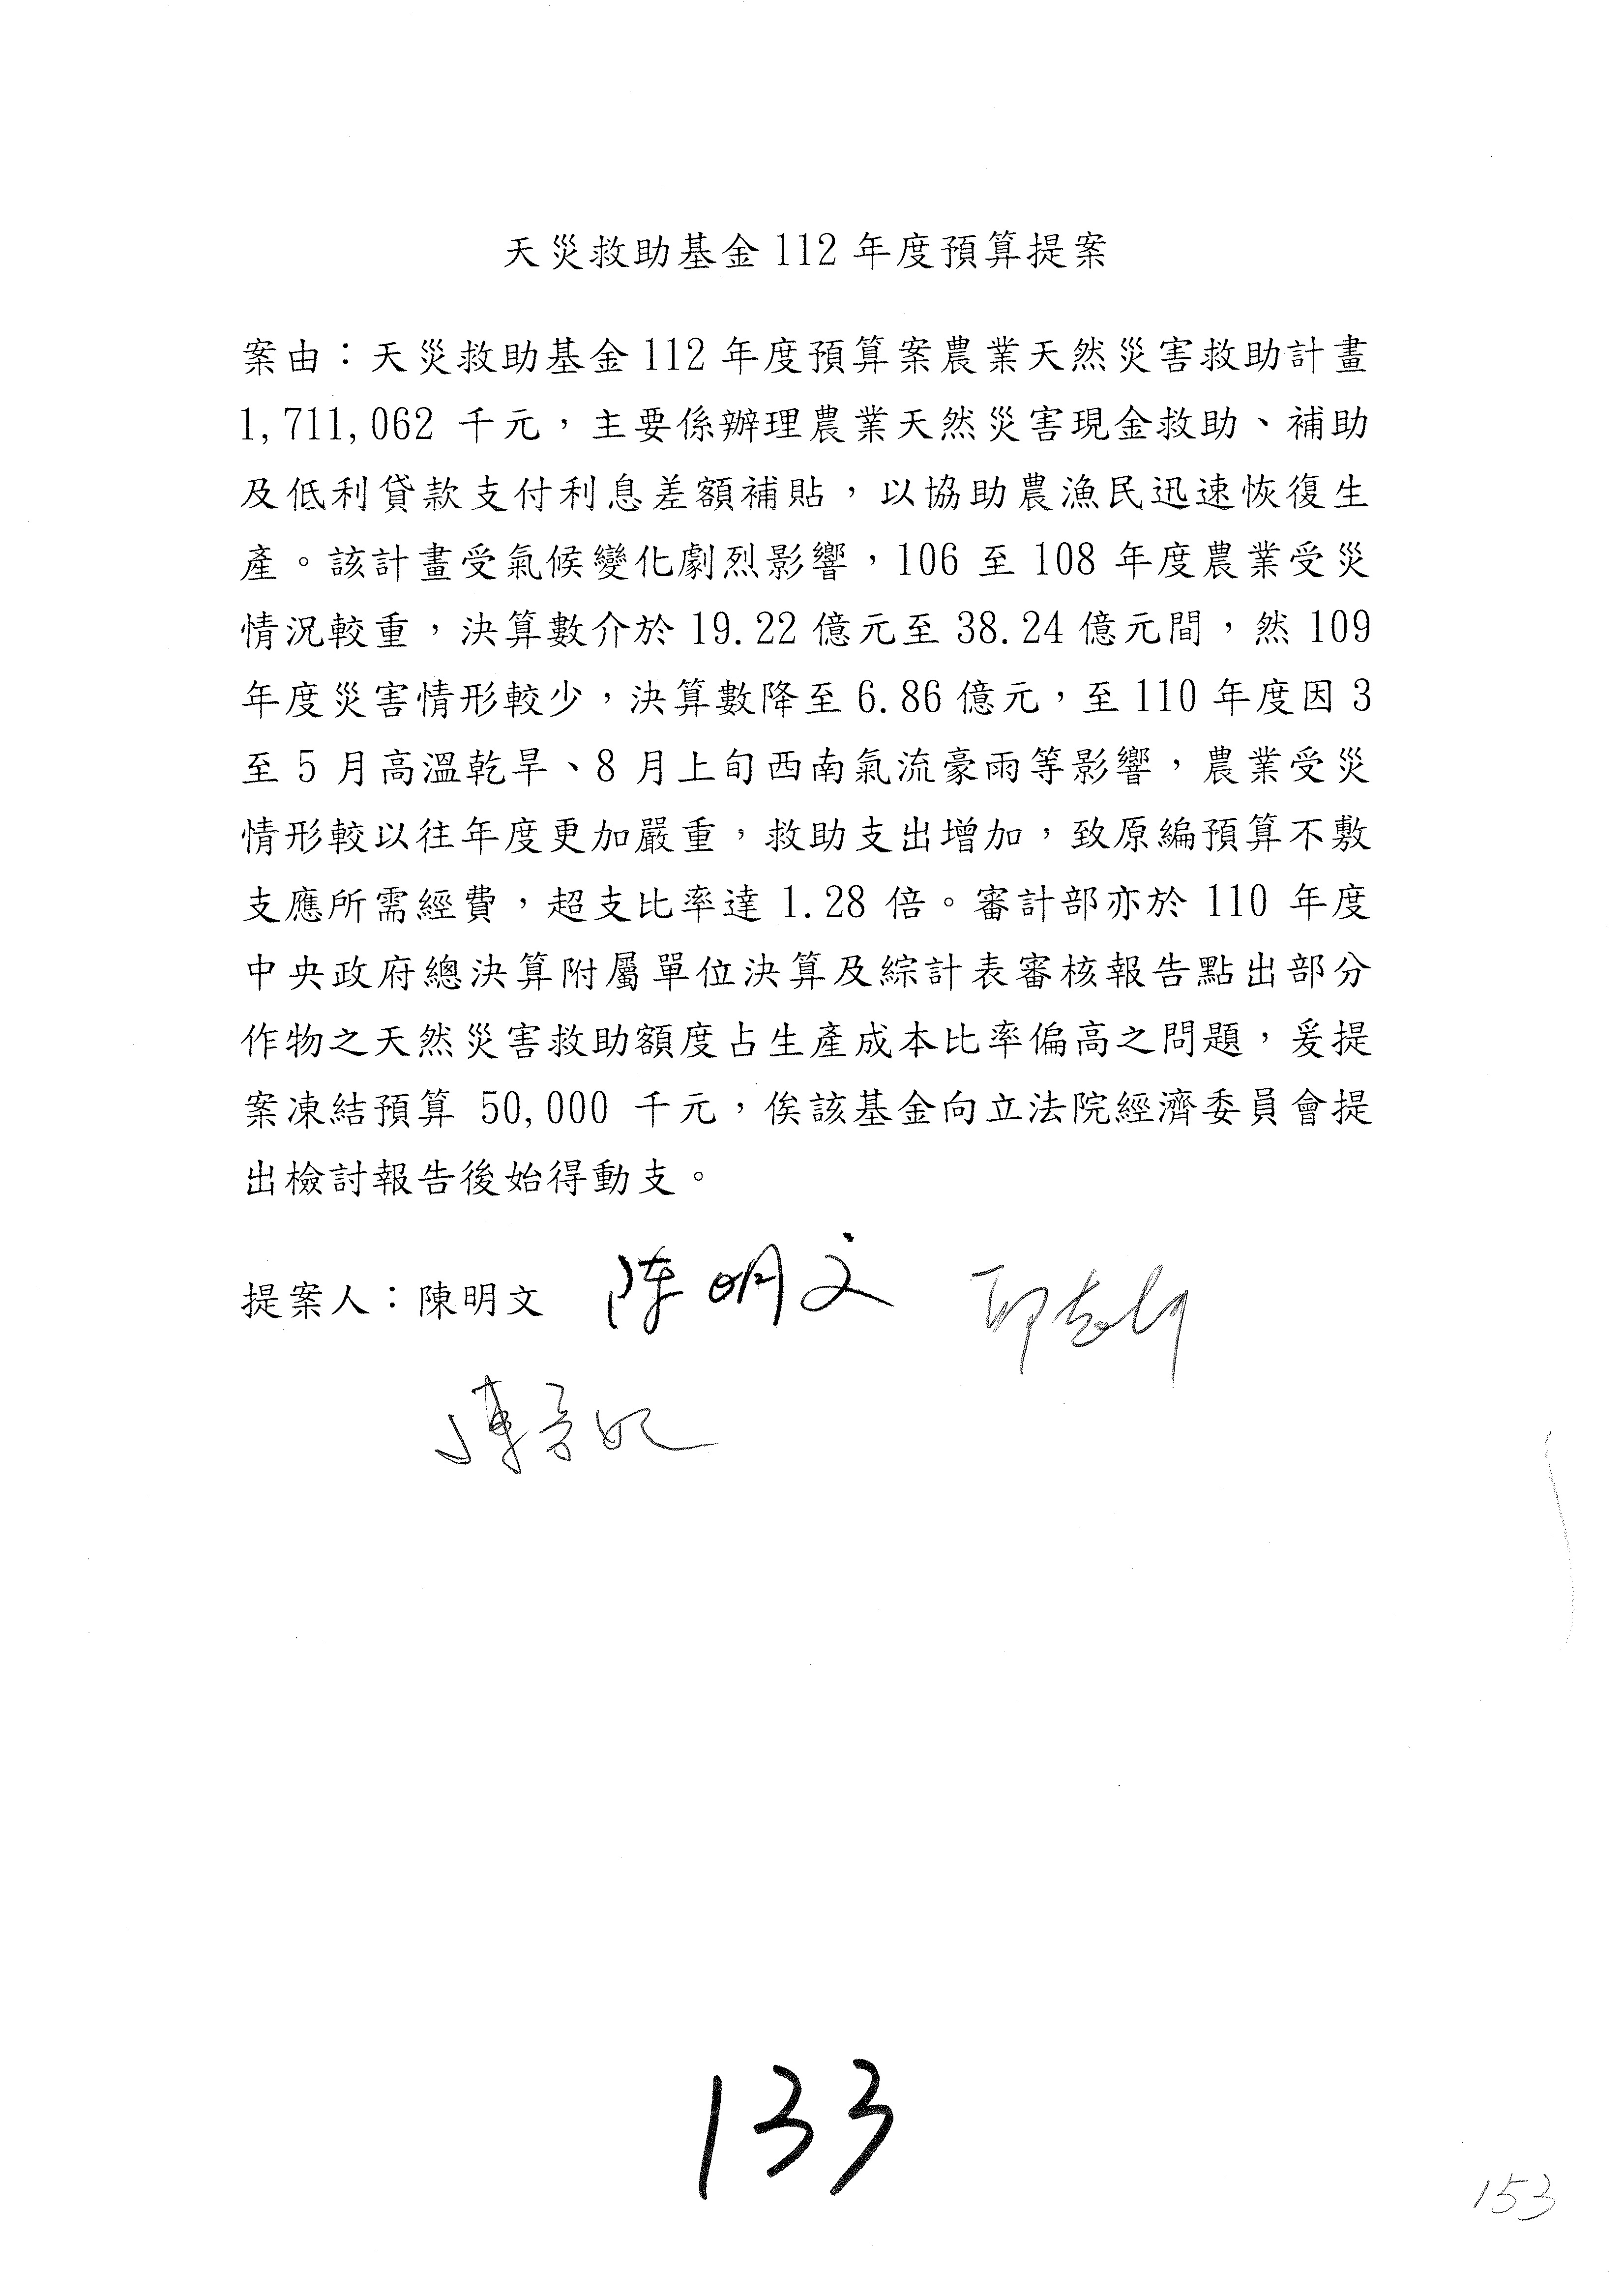 天災救助基金 112 年度預算提案
案由：天災救助基金 112 年度預算案農業天然災害救助計畫
1,711,062 千元，主要係辦理農業天然災害現金救助、補助
及低利貸款支付利息差額補貼，以協助農漁民迅速恢復生
產。該計畫受氣候變化劇烈影響，106 至 108 年度農業受災
情況較重，決算數介於 19.22 億元至 38.24 億元間，然 109
年度災害情形較少，決算數降至 6.86 億元，至 110 年度因 3
至 5 月高溫乾旱、8 月上旬西南氣流豪雨等影響，農業受災
情形較以往年度更加嚴重，救助支出增加，致原編預算不敷
支應所需經費，超支比率達 1.28 倍。審計部亦於 110 年度
中央政府總決算附屬單位決算及綜計表審核報告點出部分
作物之天然災害救助額度占生產成本比率偏高之問題，爰提
案凍結預算 50,000 千元，俟該基金向立法院經濟委員會提
出檢討報告後始得動支。
提案人：陳明文 陈明文
133
153